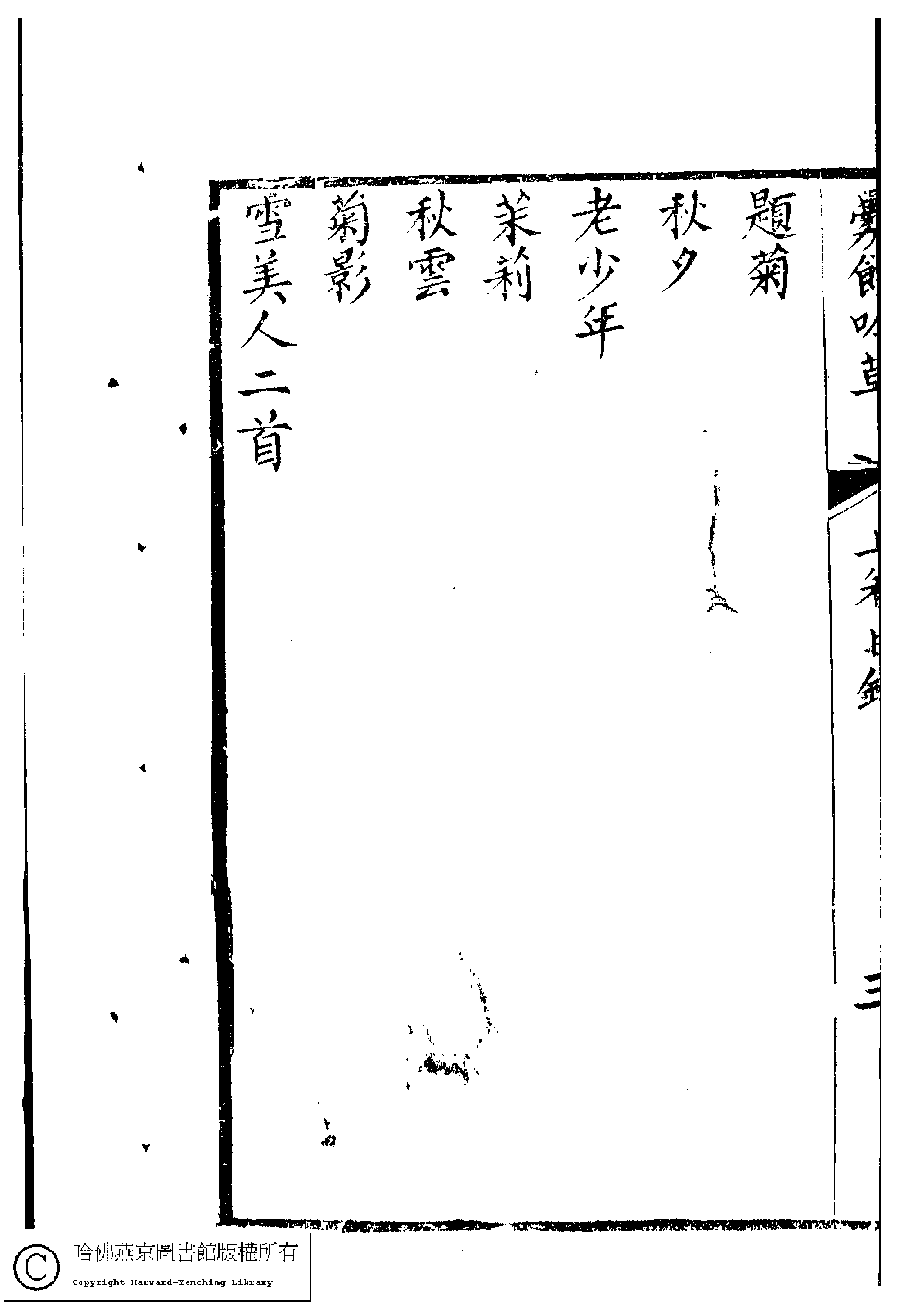 吟草 上卷目錄 三
題菊
秋夕
老少年
茉莉
秋雲
菊影
雪美人二首
© 哈佛燕京圖書館版權所有
Copyright Harvard-Yenching Library